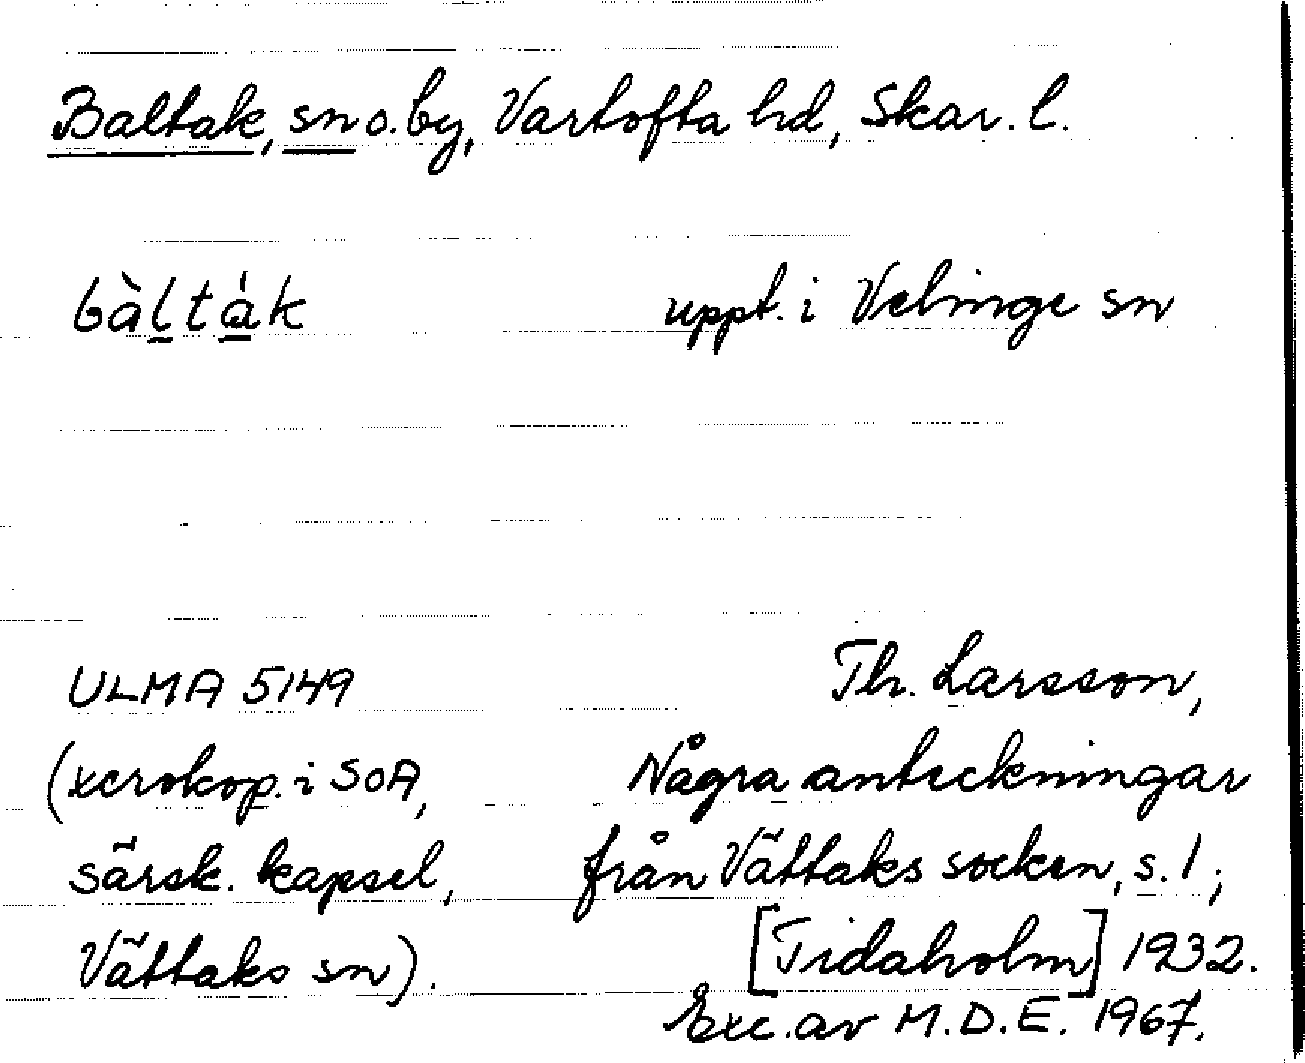 Baltak, sn o. by, Vartofta hd, Skar. l.
bàl̠tá̠k uppt. i Velinge sn
ULMA 5149
(xerokop. i SOA,
särsk. kapsel,
Vättaks sn).
Th. Larsson,
Några anteckningar
från Vättaks socken, s. 1;
[Tidaholm] 1932.
Exc. av M.D.E. 1967.